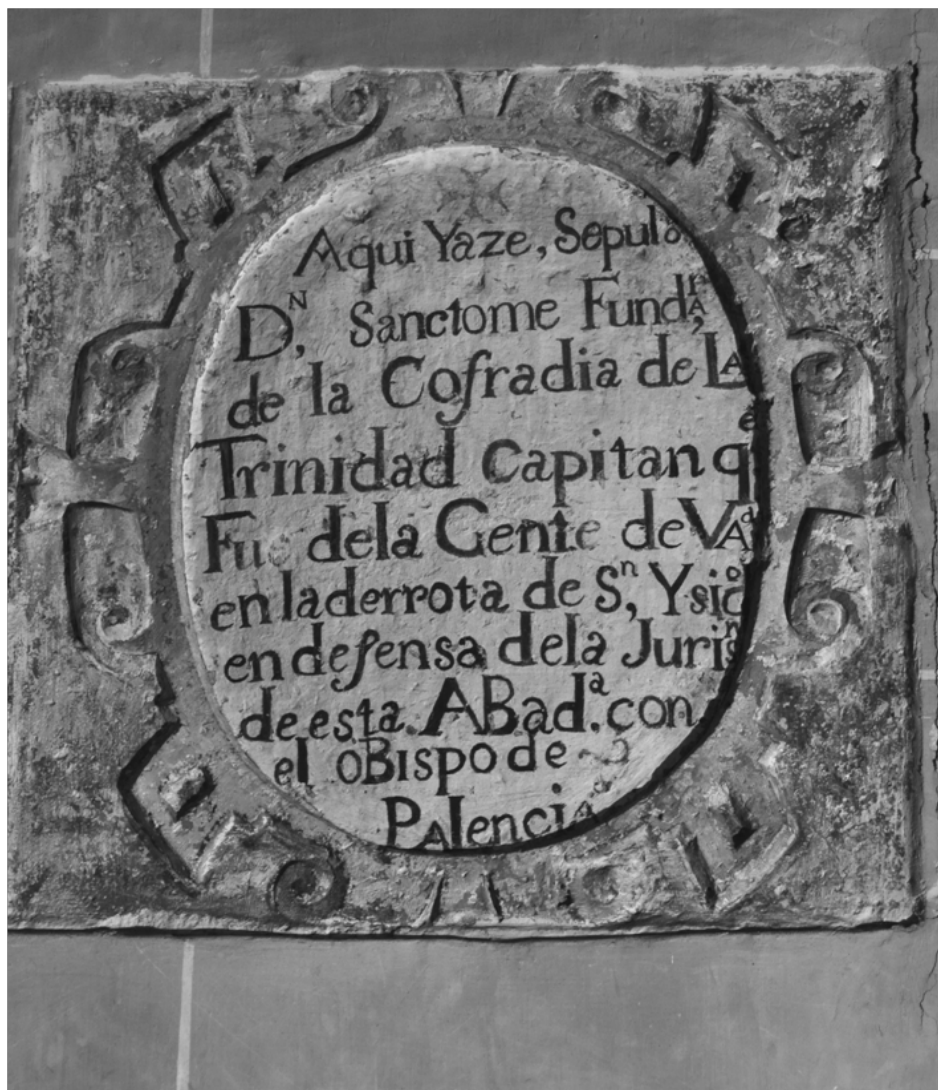 Aqui Yaze, Sepuldo
DN, Sanctome FundrA,
de la Cofradia de LA
Trinidad Capitan qe
Fue dela Gente de VAd
en laderrota de Sn, Ysido
en defensa dela Jurisn
de esta. ABada. con
el oBispo de
PAlenciA